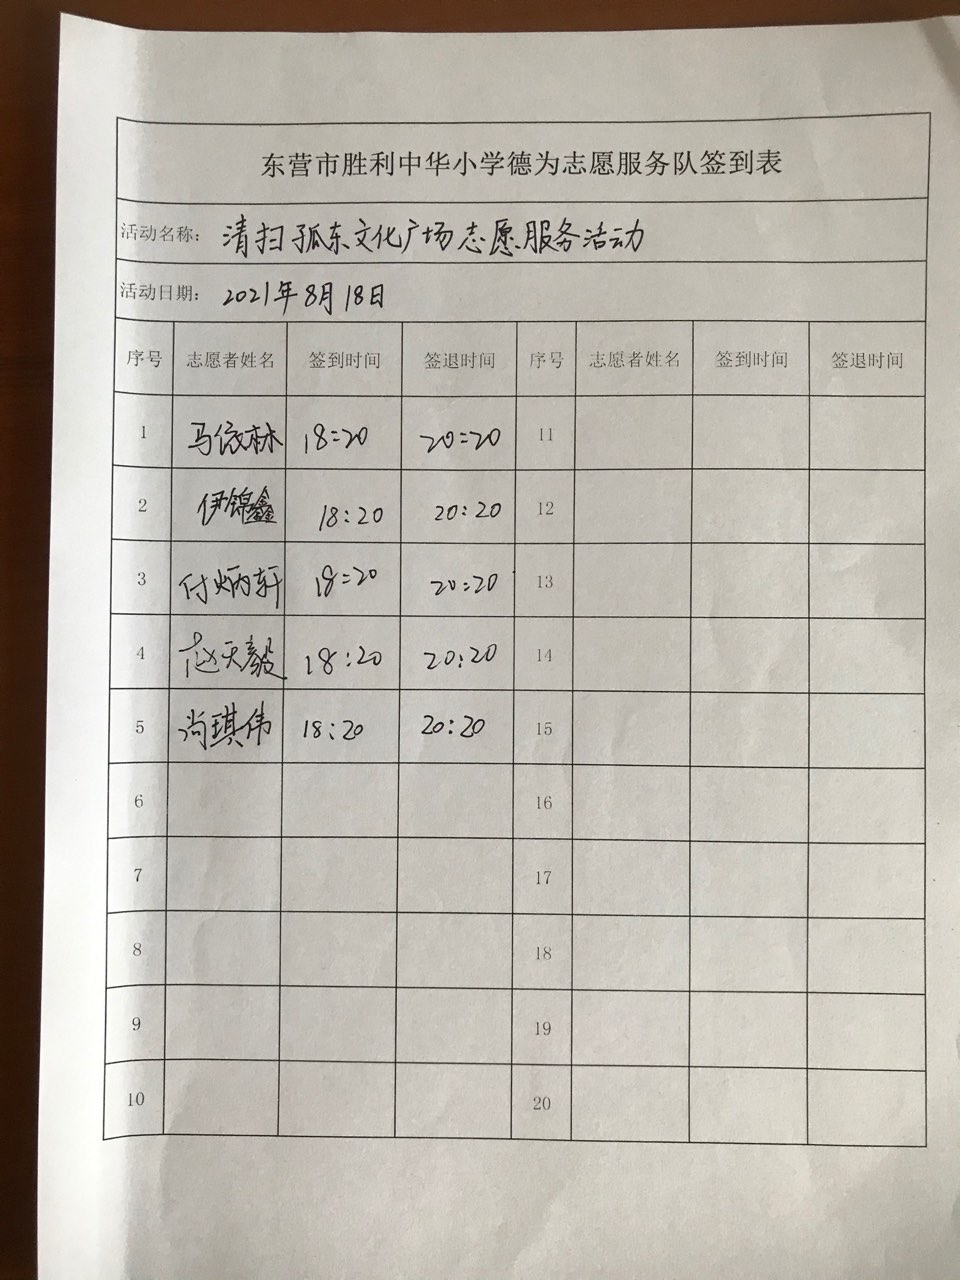 东营市胜利中华小学德为志愿服务队签到表
活动名称： 清扫孤东文化广场志愿服务活动
活动日期： 2021年8月18日
序号 志愿者姓名 签到时间 签退时间 序号 志愿者姓名 签到时间 签退时间
1 马依林 18:20 20:20 11
2 伊锦鑫 18:20 20:20 12
3 付炳轩 18:20 20:20 13
4 赵天毅 18:20 20:20 14
5 尚琪伟 18:20 20:20 15
6 16
7 17
8 18
9 19
10 20